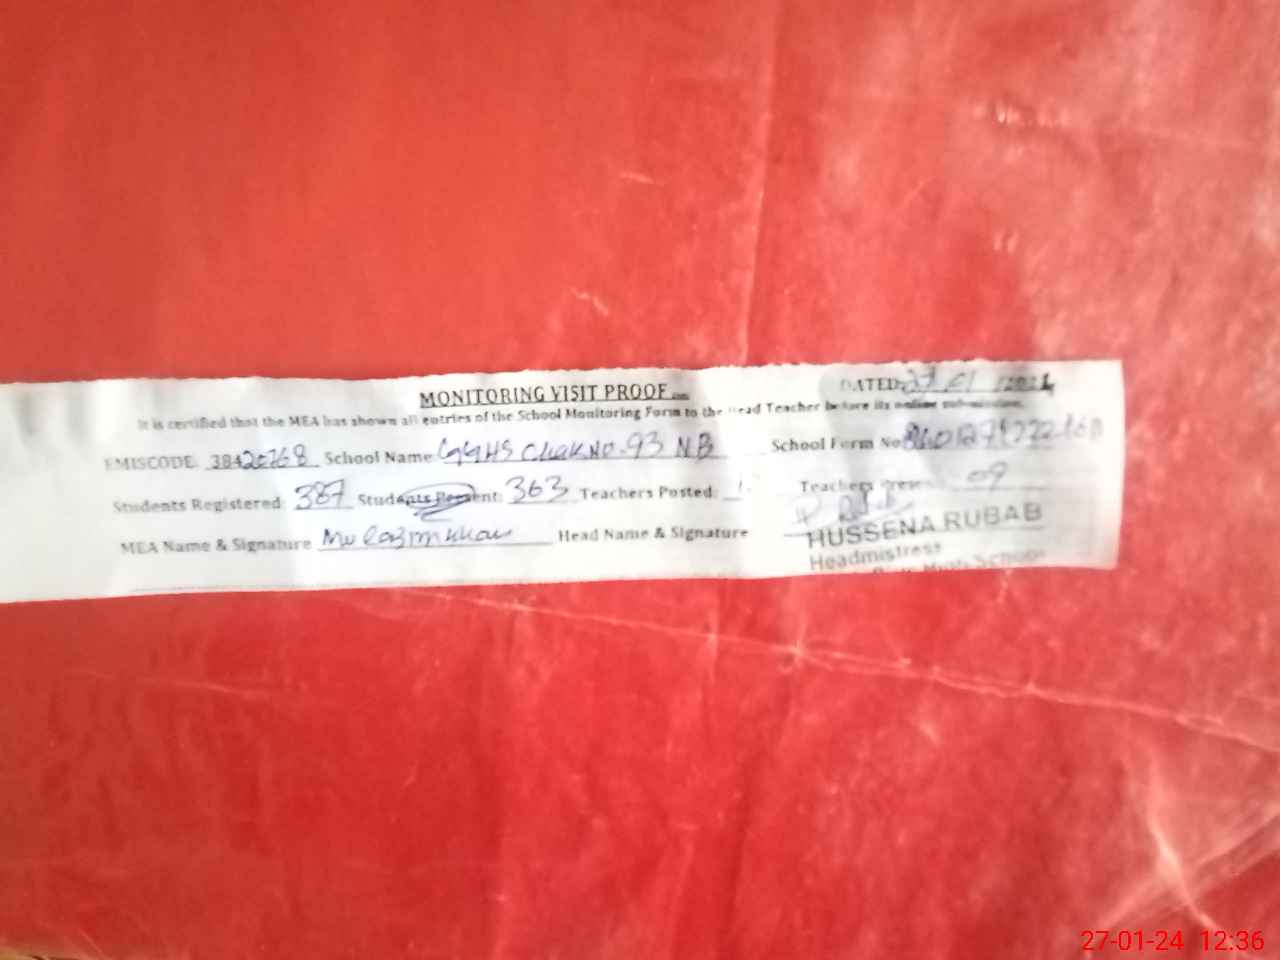 MONITORING VISIT PROOF
DATED
It is certified that the MEA has shown all entries of the School Monitoring Form to the Head Teacher before its online submission.
EMISCODE 38420768 School Name GGHS Chak No. 93 NB School Form No
Students Registered: 387 Students Present: 363 Teachers Posted: Teachers Present 09
MEA Name & Signature Head Name & Signature
HUSSENA RUBAB
Headmistress
High School
27-01-24 12:36